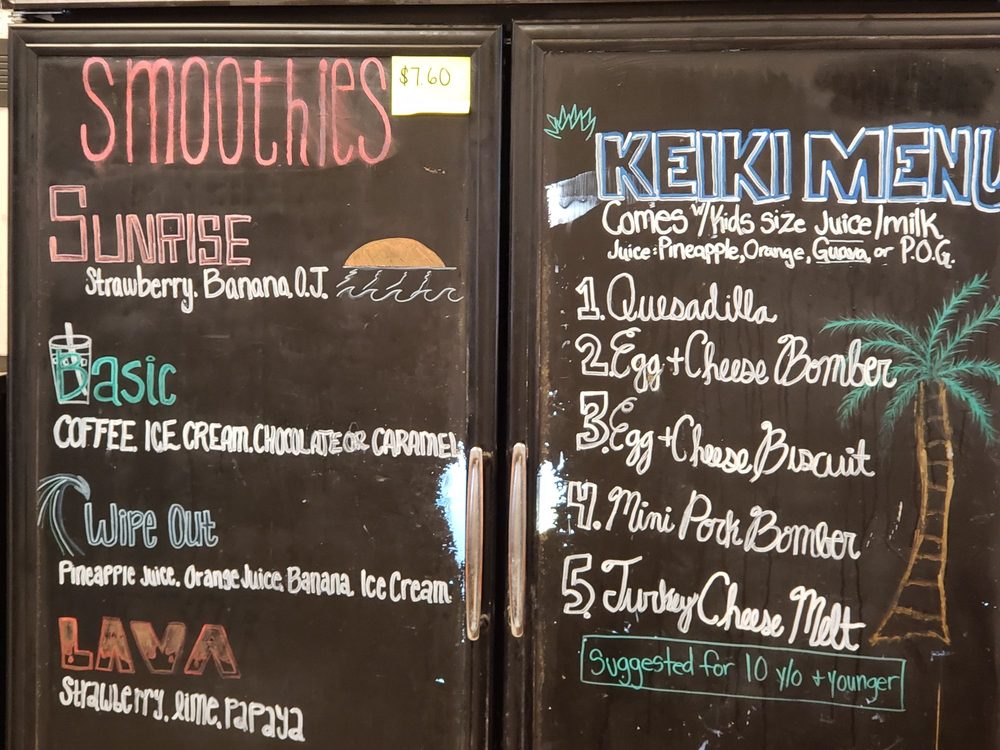 Smoothies
$7.60
Sunrise
Strawberry, Banana, O.J.
Basic
COFFEE, ICE CREAM, CHOCOLATE OR CARAMEL
Wipe Out
Pineapple Juice, Orange Juice, Banana, Ice Cream
LAVA
Strawberry, lime, Papaya
KEIKI MENU
Comes w/Kids size Juice/milk
Juice: Pineapple, Orange, Guava, or P.O.G.
1. Quesadilla
2. Egg + Cheese Bomber
3. Egg + Cheese Biscuit
4. Mini Pork Bomber
5. Turkey Cheese Melt
Suggested for 10 y/o + younger